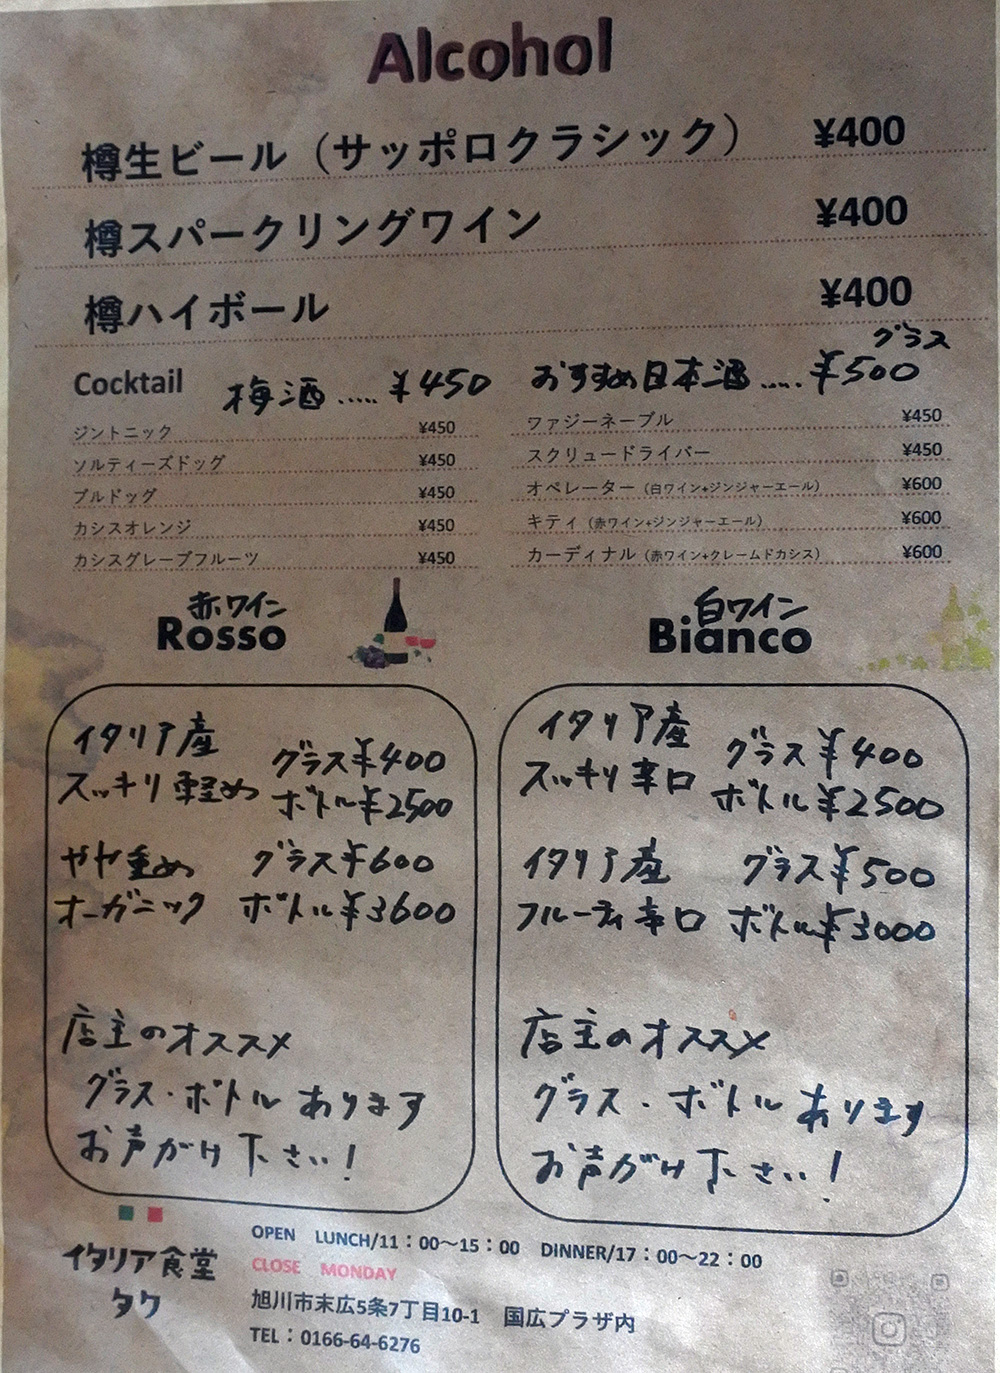 Alcohol
樽生ビール（サッポロクラシック） ¥400
樽スパークリングワイン ¥400
樽ハイボール ¥400
Cocktail 梅酒..... ¥450
グラス
おすすめ日本酒..... ¥500
ジントニック ¥450
ソルティーズドッグ ¥450
ブルドッグ ¥450
カシスオレンジ ¥450
カシスグレープフルーツ ¥450
ファジーネーブル ¥450
スクリュードライバー ¥450
オペレーター（白ワイン+ジンジャーエール） ¥600
キティ（赤ワイン+ジンジャーエール） ¥600
カーディナル（赤ワイン+クレームドカシス） ¥600
赤ワイン
Rosso
イタリア産 グラス¥400
スッキリ軽め ボトル¥2500
やや重め グラス¥600
オーガニック ボトル¥3600
店主のオススメ
グラス・ボトルあります
お声がけ下さい！
白ワイン
Bianco
イタリア産 グラス¥400
スッキリ辛口 ボトル¥2500
イタリア産 グラス¥500
フルーティ辛口 ボトル¥3000
店主のオススメ
グラス・ボトルあります
お声がけ下さい！
イタリア食堂
タク
OPEN LUNCH/11：00～15：00 DINNER/17：00～22：00
CLOSE MONDAY
旭川市末広5条7丁目10-1 国広プラザ内
TEL：0166-64-6276